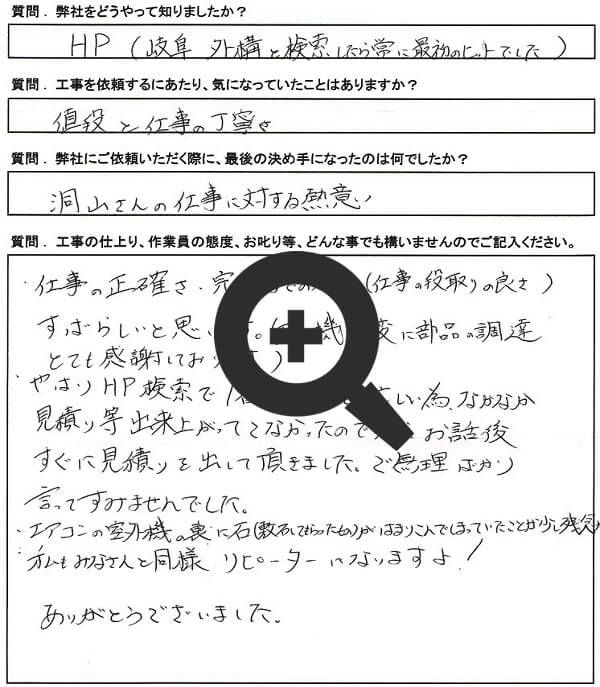 質問. 弊社をどうやって知りましたか?
HP (岐阜 外構と検索したら常に最初のヒットでした)
質問. 工事を依頼するにあたり、気になっていたことはありますか?
値段と仕事の丁寧さ
質問. 弊社にご依頼いただく際に、最後の決め手になったのは何でしたか?
洞山さんの仕事に対する熱意い
質問. 工事の仕上り、作業員の態度、お叱り等、どんな事でも構いませんのでご記入ください。
・仕事の正確さ、完 での (仕事の段取りの良さ)
すばらしいと思い す。( 機 変に部品の調達
とても感謝してお す)
・やはりHP検索で 1 しい為、なかなか
見積り等出来上がってこなかったので お話後
すぐに見積りを出して頂きました。ご無理ばかり
言ってすみませんでした。
・エアコンの室外機の裏に石(敷石してもらったもの)がはまりこんでしまっていたことが少し残念
・私もみなさんと同様 リピーターになりますよ!
ありがとうございました。